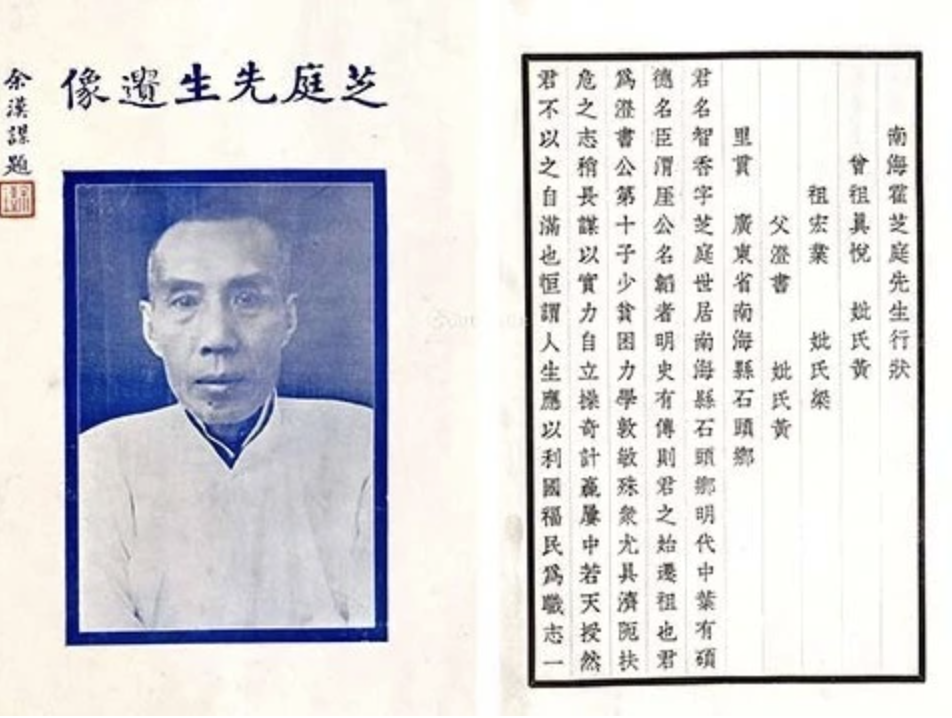 芝庭先生遺像
余漢謀題
南海霍芝庭先生行狀
曾祖眞悅　妣氏黃
祖宏業　妣氏梁
父澄書　妣氏黃
里貫　廣東省南海縣石頭鄉
君名智香字芝庭世居南海縣石頭鄉明代中葉有碩
德名臣渭厓公名韜者明史有傳則君之始遷祖也君
爲澄書公第十子少貧困力學敦敏殊衆尤具濟阨扶
危之志稍長謀以實力自立操奇計贏屢中若天授然
君不以之自滿也恒謂人生應以利國福民爲職志一